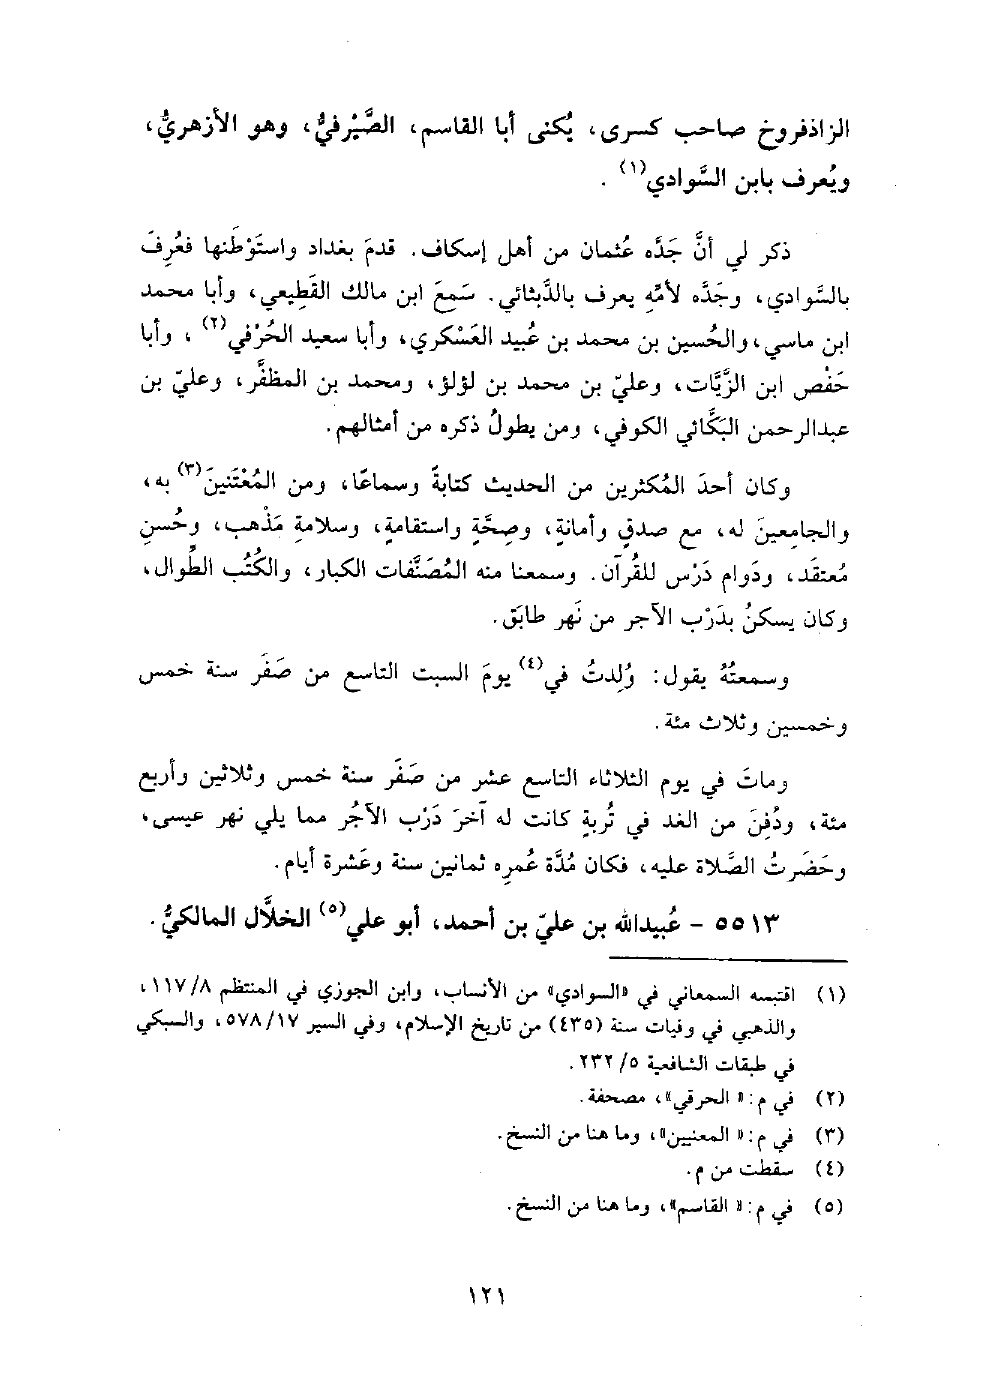 الزاذفروخ صاحب كسرى، يُكنى أبا القاسم، الصَّيْرفيُّ، وهو الأزهريُّ،
ويُعرف بابن السَّوادي(١) .
ذكر لي أنَّ جَدَّه عُثمان من أهل إسكاف. قدمَ بغداد واستَوْطَنها فعُرِفَ
بالسَّوادي، وجَدَّه لأمِّهِ يعرف بالدَّبثائي. سَمِعَ ابن مالك القَطِيعي، وأبا محمد
ابن ماسي، والحُسين بن محمد بن عُبيد العَسْكري، وأبا سعيد الحُرْفي(٢)، وأبا
حَفْص ابن الزَّيَّات، وعليّ بن محمد بن لؤلؤ، ومحمد بن المظفَّر، وعليّ بن
عبدالرحمن البَكَّائي الكوفي، ومن يطولُ ذكره من أمثالهم.
وكان أحدَ المُكثرين من الحديث كتابةً وسماعًا، ومن المُعْتَنينَ(٣) به،
والجامِعينَ له، مع صدقٍ وأمانةٍ، وصِحَّةٍ واستقامةٍ، وسلامةِ مَذْهب، وحُسنِ
مُعتقَد، ودَوام دَرْس للقُرآن. وسمعنا منه المُصَنَّفات الكبار، والكُتُب الطِّوال،
وكان يسكنُ بدَرْب الآجر من نَهر طابَق.
وسمعتُهُ يقول: وُلِدتُ في(٤) يومَ السبت التاسع من صَفَر سنة خمس
وخمسين وثلاث مئة.
وماتَ في يوم الثلاثاء التاسع عشر من صَفَر سنة خمس وثلاثين وأربع
مئة، ودُفِنَ من الغد في تُربةٍ كانت له آخرَ دَرْب الآجُر مما يلي نهر عيسى،
وحَضَرتُ الصَّلاة عليه، فكان مُدَّة عُمرِه ثمانين سنة وعَشرة أيام.
٥٥١٣ - عُبيدالله بن عليّ بن أحمد، أبو علي(٥) الخلَّال المالكيُّ.
(١) اقتبسه السمعاني في «السوادي» من الأنساب، وابن الجوزي في المنتظم ٨/ ١١٧،
والذهبي في وفيات سنة (٤٣٥) من تاريخ الإسلام، وفي السير ١٧/ ٥٧٨، والسبكي
في طبقات الشافعية ٥/ ٢٣٢.
(٢) في م: «الحرقي»، مصحفة.
(٣) في م: «المعنيين»، وما هنا من النسخ.
(٤) سقطت من م.
(٥) في م: «القاسم»، وما هنا من النسخ.
١٢١